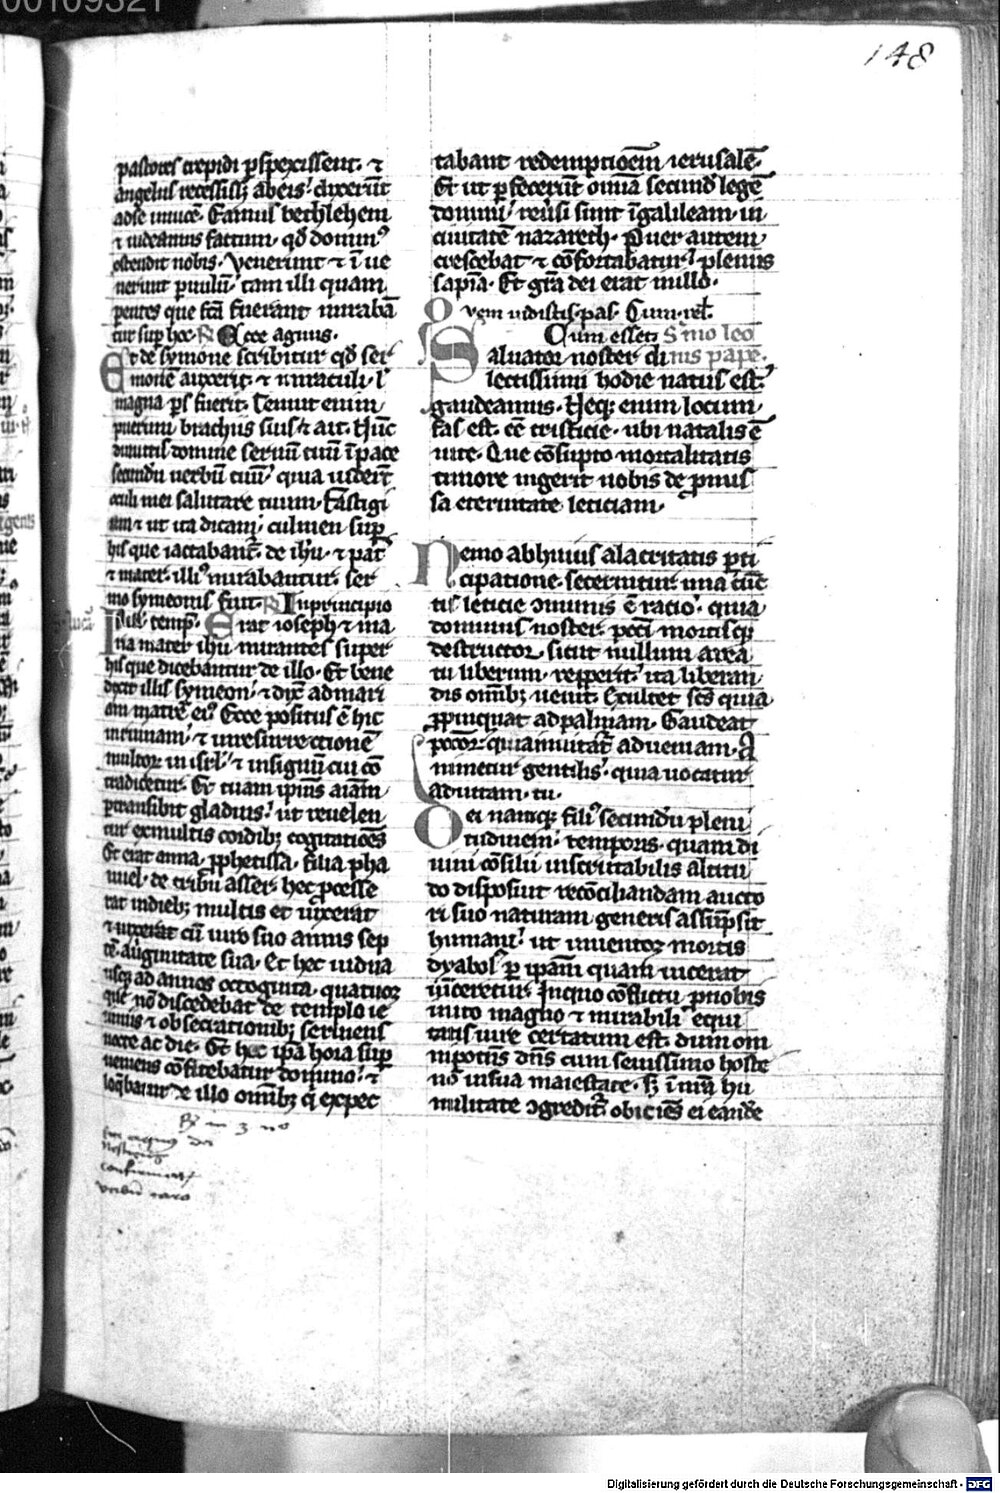 148
pastores crepidi p̄spexissent. ⁊
angelus recessiss; ab eis. dixerūt
ad se inuicē. Eamus bethlehem
⁊ uideamus factum. qd̄ domin⁹
ostendit nobis. Venerunt ⁊ īue
nerunt puulū. tam illi quam
pentes que fc̄a fuerant mirabā
tur sup hoc. R Ecce agnus.
Et de symone scribitur qd̄ ser
monē auxerit. ⁊ miraculi. l'
magna ps fuerit. Tenuit enim
puerum brachiis suis. ⁊ ait. Nūc
dimittis domine seruū tuū ī pace
secundū uerbū tuū. quia uiderūt
oculi mei salutare tuum. Fastigi
um ⁊ ut ita dicam. culmen sup
his que iactabant̄. de ih̄u. ⁊ pat̄
⁊ mater. illi⁹ mirabantur. ser
mo symeonis fuit. R In principio
In ill. temp. Erat ioseph ⁊ ma
ria mater ih̄u mirantes super
his que dicebantur de illo. Et bene
dixit illis symeon. ⁊ dix̄ ad mari
am matrē ei⁹. Ecce positus ē hic
in ruinam. ⁊ in resurrectionē
multoꝝ in isrl'. ⁊ in signū cui cō
tradicetur. Et tuam ipsius aīam
ptransibit gladius. ut reuelen
tur ex multis cordib; cogitationes
Et erat anna. ꝓphetissa. filia pha
nuel. de tribu asser. hec ꝓcesse
rat in dieb; multis et uixerat
⁊ uixerat cū uiro suo annis sep
tē. a uginitate sua. Et hec uidua
usq; ad annos octoginta. quatuor
que nō discedebat de templo ie
iuniis ⁊ obsecrationib; seruiens
nocte ac die. Et hec ipā hora sup
ueniens cōfitebatur domino. ⁊
loq̄batur de illo omīb; q̄ expec
tabant redemptiocm̄ ierusalē.
Et ut pfecerūt omīa secund̄ legē
domini. reūsi sunt ī galileam. in
ciuitatē nazareth. Puer autem
crescebat ⁊ cōfortabatur. plenus
sapīa. Et grā dei erat in illo.
Quem uidistis. pas. Cum. rel.
Cum essetꝫ Smo leo
Saluator noster di nis pape.
lectissimi hodie natus est.
gaudeamus. Neq; enim locum
fas est. eē tristicie. ubi natalis ē
uite. Que cōsūpto mortalitatis
timore ingerit nobis de ꝓmis
sa eternitate leticiam.
Nemo ab huius alacritatis pti
cipatione. secernitur. una cūc
tis leticie ɔmunis ē racio. quia
dominus noster. pccī mortisq;
destructor. sicut nullum a rea
tu liberum. repperit. ita liberan
dis omīb; uenit. Exultet sc̄s quia
ꝓpinquat ad palmam. Gaudeat
pccōr. quia inuitat̄ ad ueniam. A
nimetur gentilis. quia uocatur
ad uitam. tu.
Dei namq; fili⁹ secundū pleni
tudinem. temporis. quam di
uini cōsilii inscrutabilis altitu
do disposuit recōciliandam aucto
ri suo naturam generis assūpsit
humani. ut inuentor mortis
dyabol' p ipam quam uicerat
uīceretur. In quo cōflictu p nobis
inito magno ⁊ mirabili equi
tatis iure certatum est. dum om
nipotns dn̄s cum seuissimo hoste
nō in sua maiestate. s; ī nrā hu
militate ɔgredit̄. obiciēs ei eandē
Digitalisierung gefördert durch die Deutsche Forschungsgemeinschaft - DFG